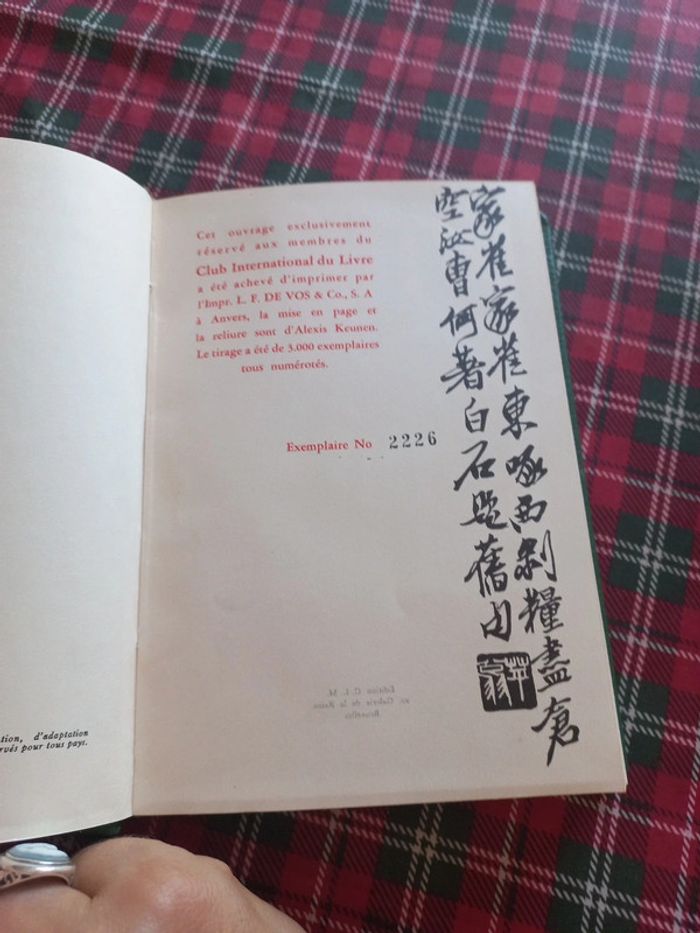 tion, d'adaptation
rvés pour tous pays.
Cet ouvrage exclusivement
réservé aux membres du
Club International du Livre
a été achevé d'imprimer par
l'Impr. L. F. DE VOS & Co., S. A
à Anvers, la mise en page et
la reliure sont d'Alexis Keunen.
Le tirage a été de 3.000 exemplaires
tous numérotés.
Exemplaire No 2226
家雀家雀東啄西剝糧盡倉
空汝曹何著白石題舊句